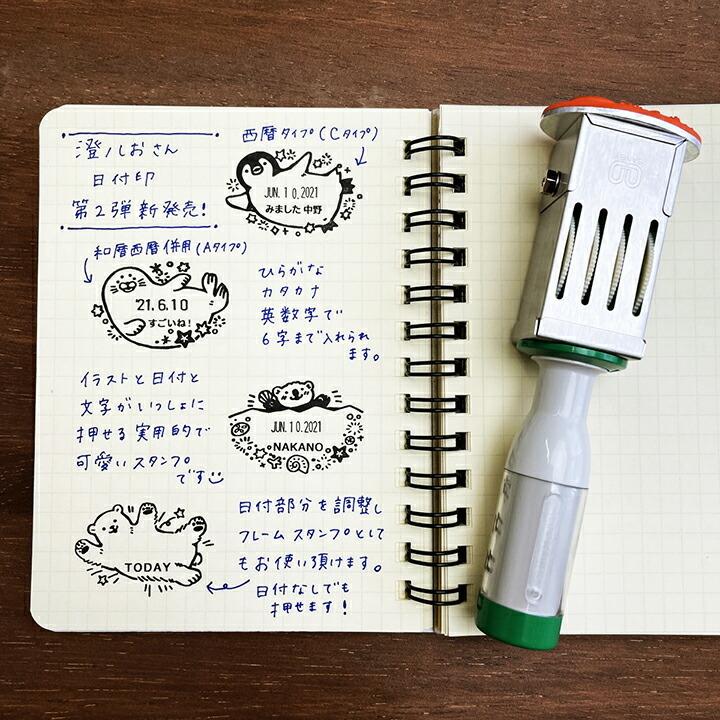 澄ノしおさん
日付印
第2弾新発売!
西暦タイプ(Cタイプ)
JUN. 10, 2021
みました 中野
和暦西暦併用(Aタイプ)
'21.6.10
すごいね!
ひらがな
カタカナ
英数字で
6字まで入れられ
ます。
イラストと日付と
文字がいっしょに
押せる実用的で
可愛いスタンプ
です
JUN. 10. 2021
NAKANO
TODAY
日付部分を調整し
フレームスタンプとして
もお使い頂けます。
日付なしでも
押せます!